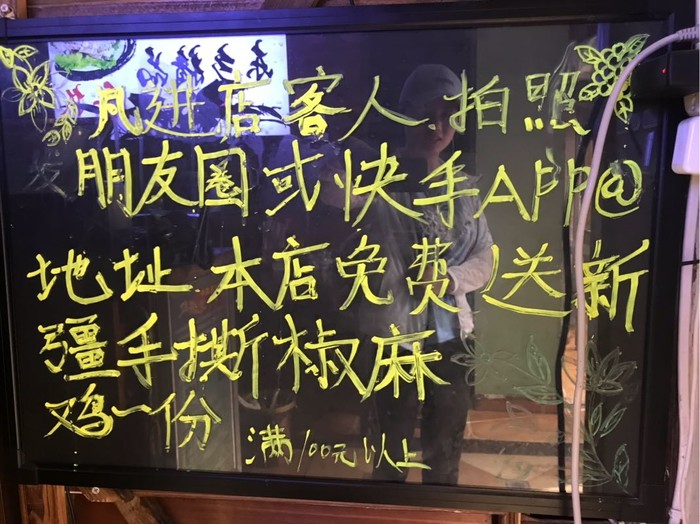 凡进店客人.拍照
发朋友圈或快手APP@
地址.本店免费送新
疆手撕椒麻
鸡一份
满100元以上